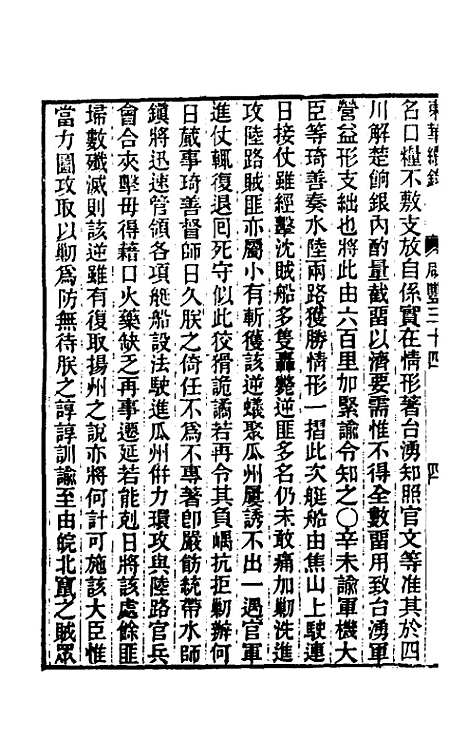 東華續錄 咸豐三十四 四
名口糧不敷支放自係實在情形著台湧知照官文等准其於四
川解楚餉銀內酌量截留以濟要需惟不得全數留用致台湧軍
營益形支絀也將此由六百里加緊諭令知之〇辛未諭軍機大
臣等琦善奏水陸兩路獲勝情形一摺此次艇船由焦山上駛連
日接仗雖經擊沈賊船多隻轟斃逆匪多名仍未敢痛加勦洗進
攻陸路賊匪亦屬小有斬獲該逆蟻聚瓜州屢誘不出一遇官軍
進仗輒復退囘死守似此狡猾詭譎若再令其負嵎抗拒勦辦何
日蕆事琦善督師日久朕之倚任不爲不專著卽嚴飭統帶水師
鎮將迅速管領各項艇船設法駛進瓜州併力環攻與陸路官兵
會合夾擊毋得藉口火藥缺乏再事遷延若能剋日將該處餘匪
埽數殲滅則該逆雖有復取揚州之說亦將何計可施該大臣惟
當力圖攻取以勦爲防無待朕之諄諄訓諭至由皖北竄之賊眾